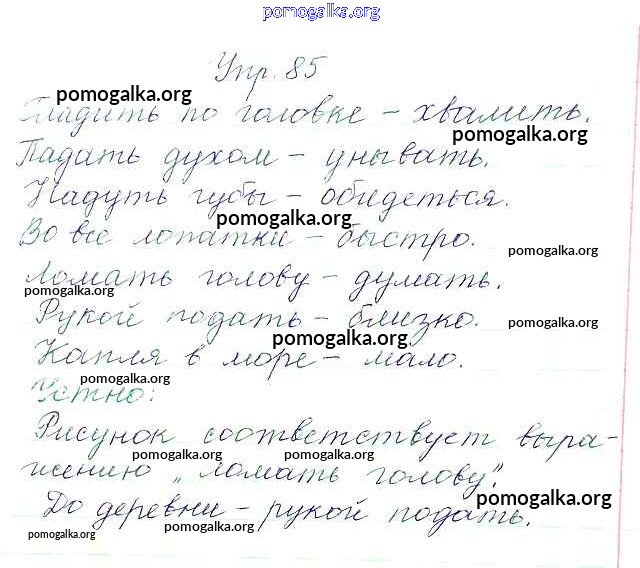 pomogalka.org
Упр. 85
pomogalka.org
Гладить по головке – хвалить.
pomogalka.org
Падать духом – унывать.
Надуть губы – обидеться.
pomogalka.org
Во все лопатки – быстро.
pomogalka.org
Ломать голову – думать.
pomogalka.org
Рукой подать – близко.
pomogalka.org
pomogalka.org
Капля в море – мало.
pomogalka.org
Устно:
Рисунок соответствует выра-
pomogalka.org pomogalka.org
жению „ломать голову".
pomogalka.org
До деревни – рукой подать.
pomogalka.org pomogalka.org